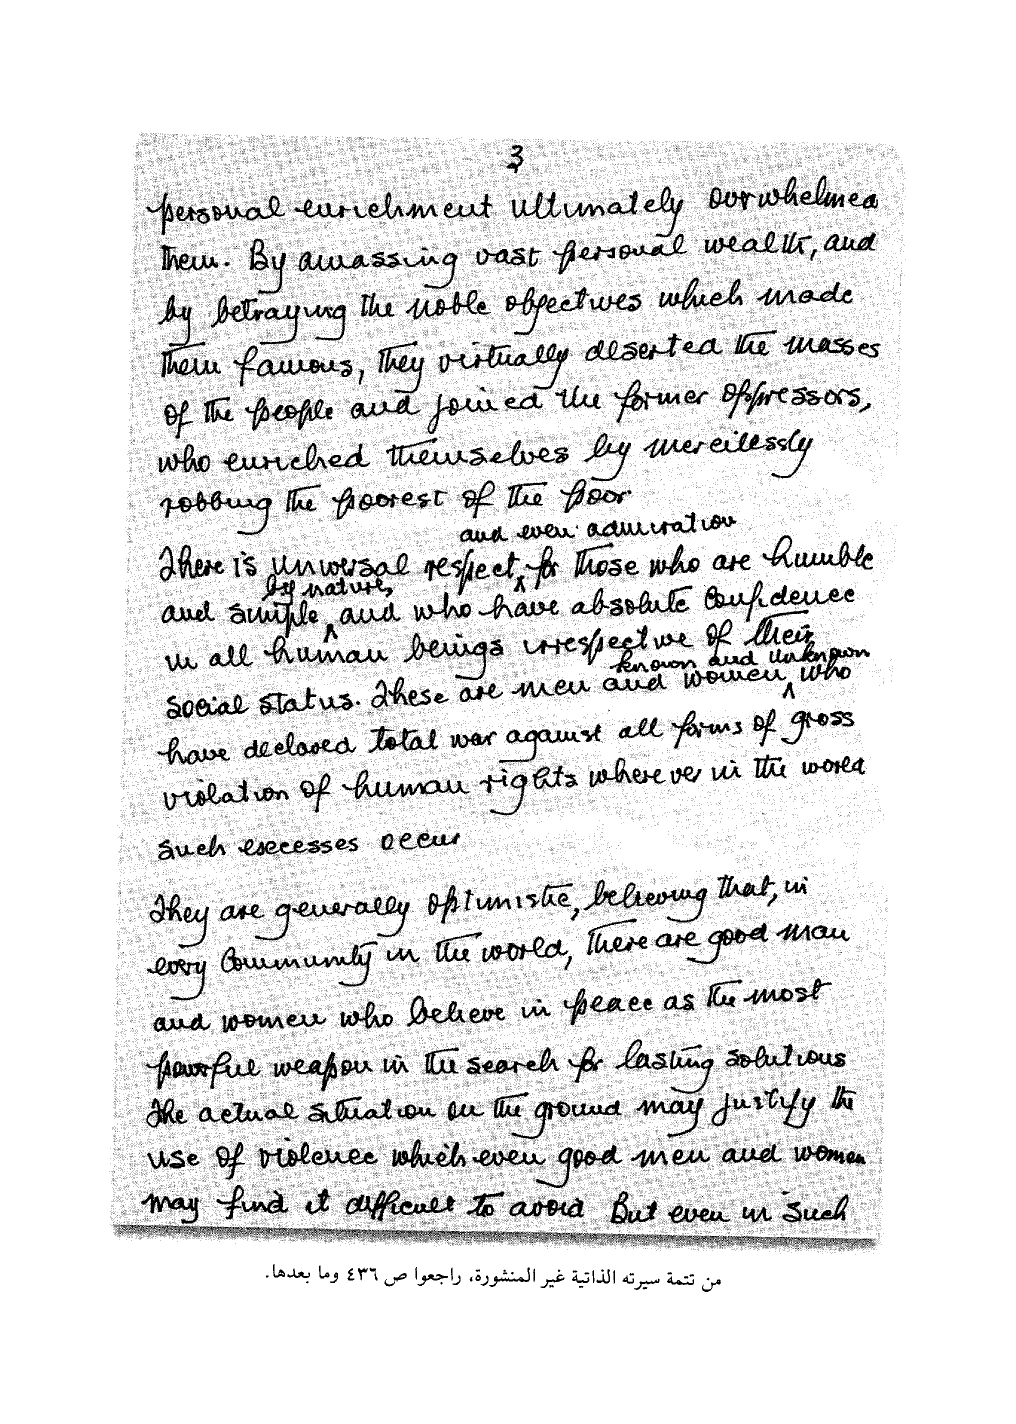 3
personal enrichment ultimately overwhelmed
them. By amassing vast personal wealth, and
by betraying the noble objectives which made
them famous, they virtually deserted the masses
of the people and joined the former oppressors,
who enriched themselves by mercilessly
robbing the poorest of the poor
and even admiration
There is universal respect ^ for those who are humble
by nature,
and simple ^ and who have absolute confidence
in all human beings irrespective of their
known and unknown
social status. These are men and women ^ who
have declared total war against all forms of gross
violation of human rights wherever in the world
such excesses occur
They are generally optimistic, believing that, in
every community in the world, there are good man
and women who believe in peace as the most
powerful weapon in the search for lasting solutions
The actual situation on the ground may justify the
use of violence which even good men and women
may find it difficult to avoid But even in such
من تتمة سيرته الذاتية غير المنشورة، راجعوا ص ٤٣٦ وما بعدها.